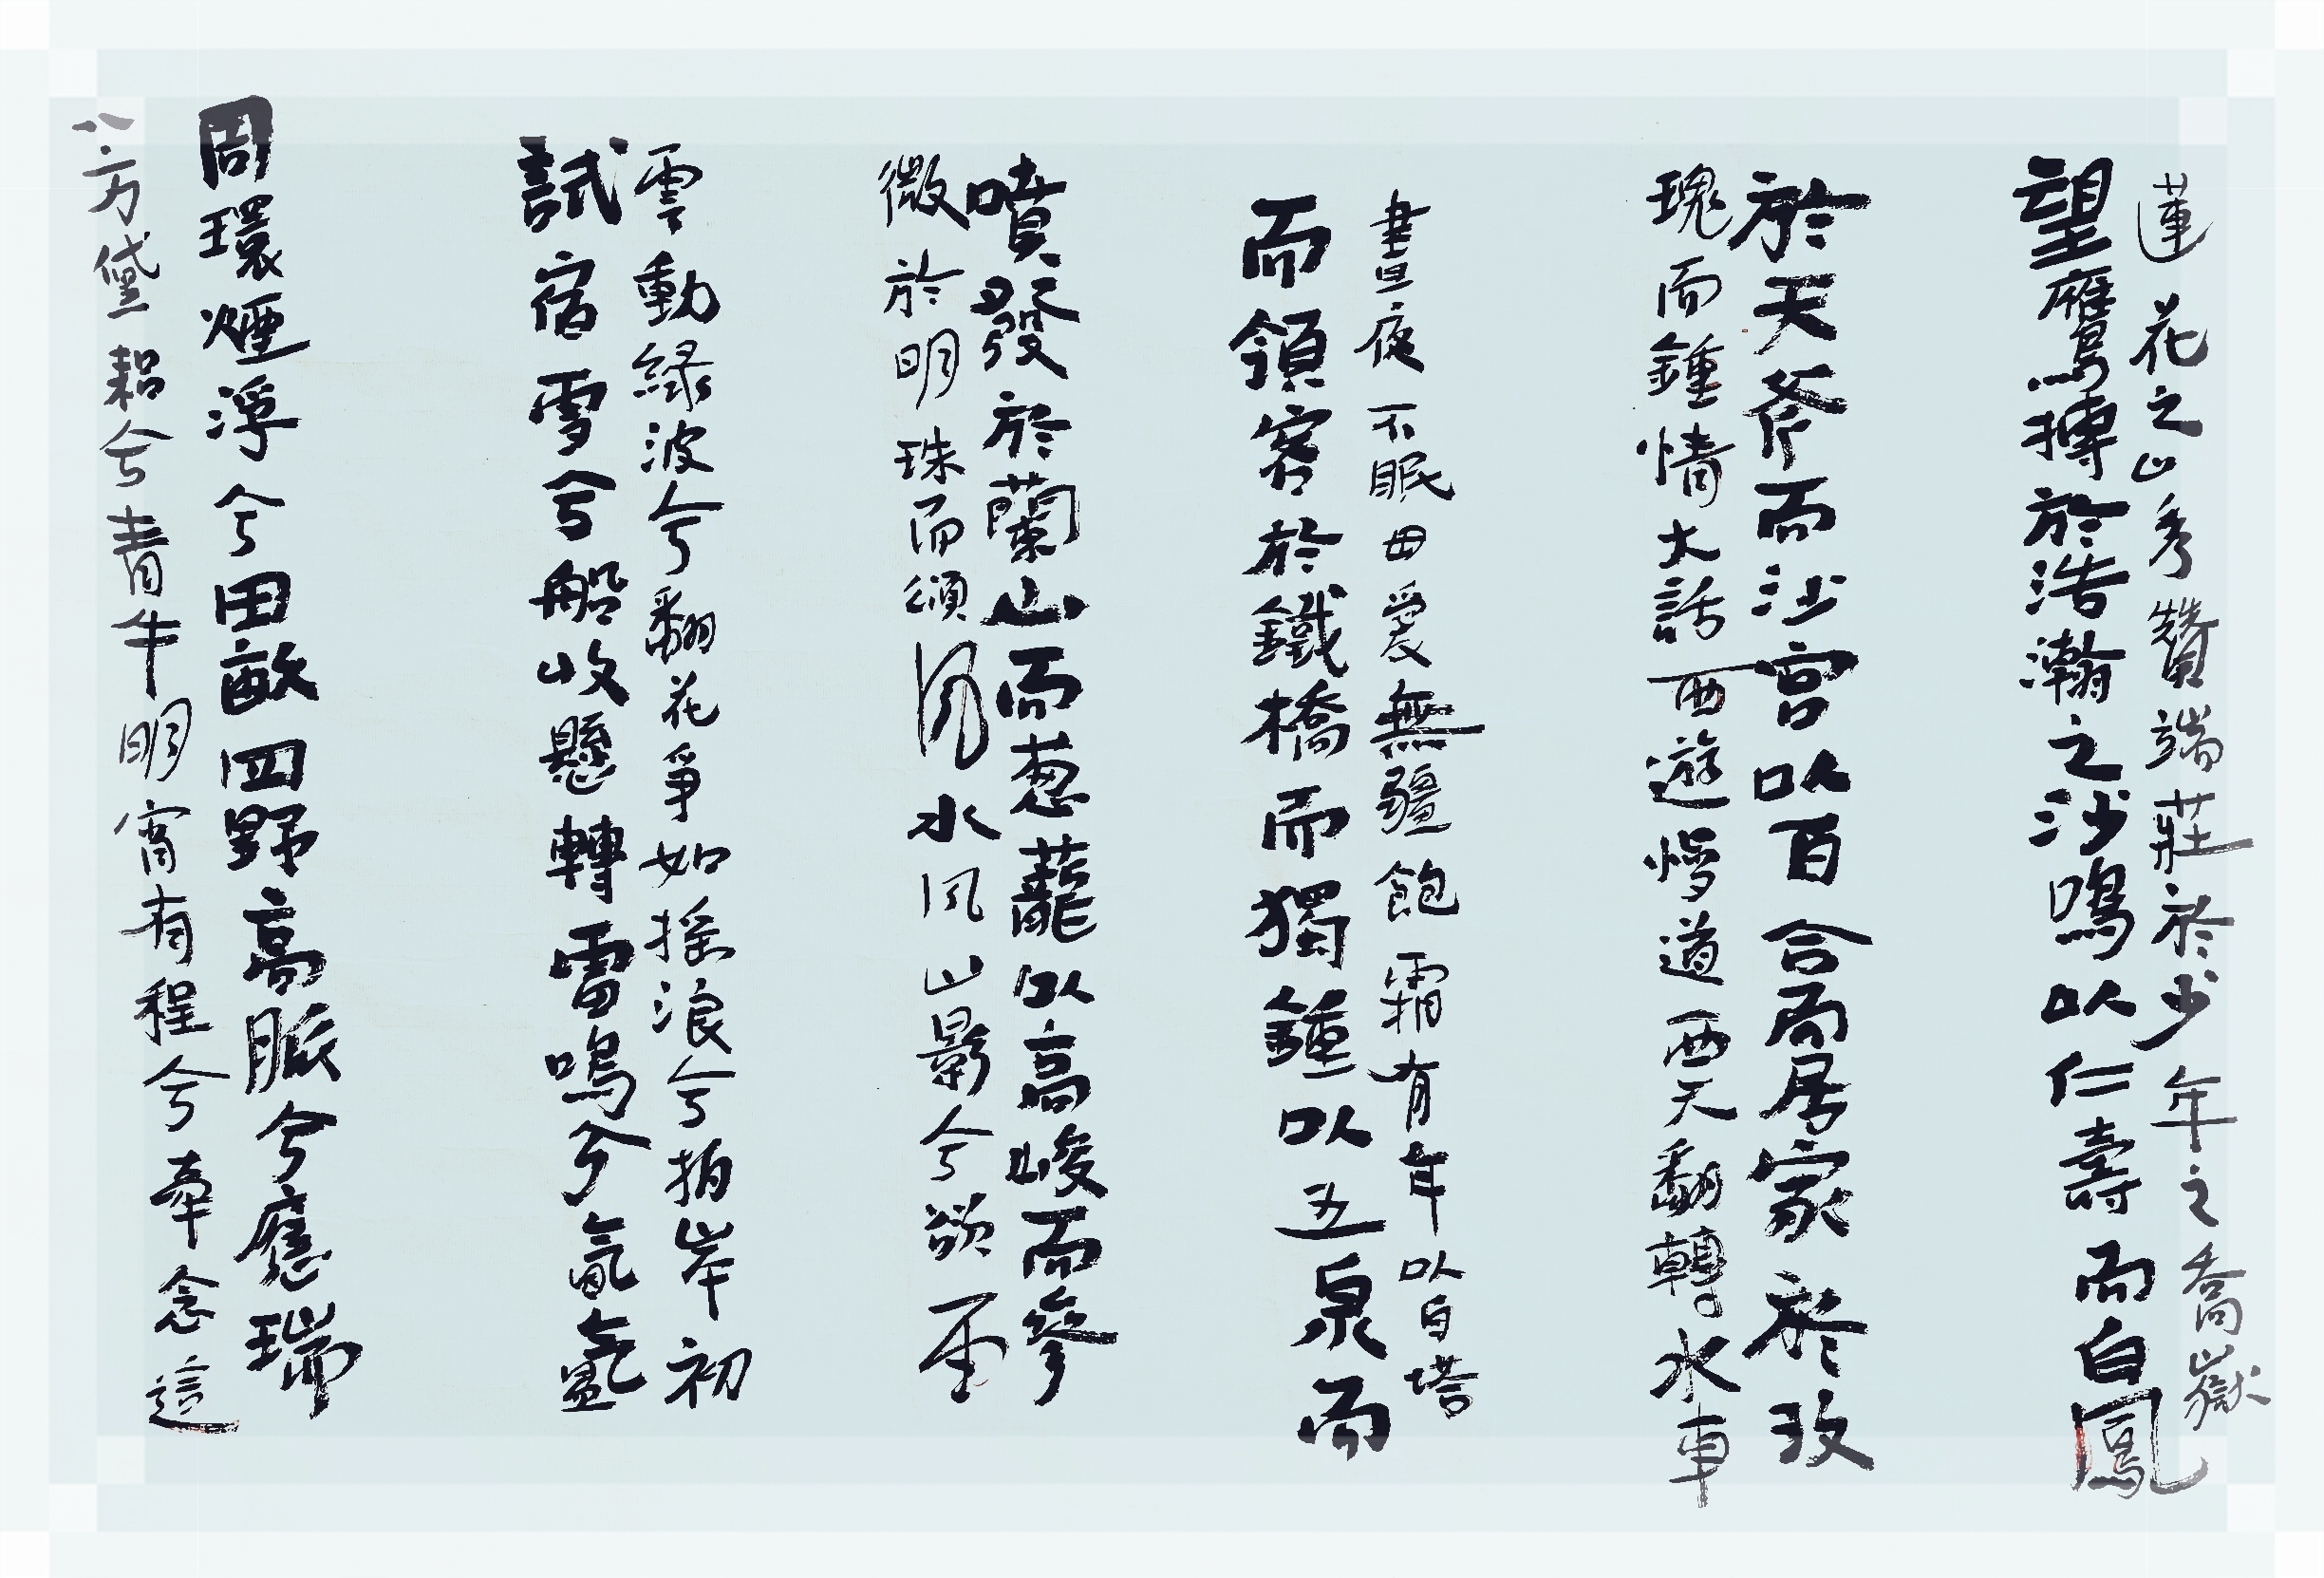 蓮花之山秀贊端莊於少年之喬嶽
望鷹搏於浩瀚之沙鳴以仁壽而白鳳
於天斧而沙宫以百合而居家於玫
瑰而鍾情大話西遊慢道西天翻轉水車
晝夜不眠母愛無疆飽霜有年以白塔
而領客於鐵橋而獨鍾以五泉而
噴發於蘭山而葱蘢以高峻而參
微於明珠而頌風水風山影兮欲
雲動緑波兮翻花爭如摇浪兮拍岸初
試宿雪兮船收懸轉雷鳴兮氤氲
周環煙浮兮田畝四野高脈兮應瑞
八方黛耜兮青牛明宵有程兮牽念這